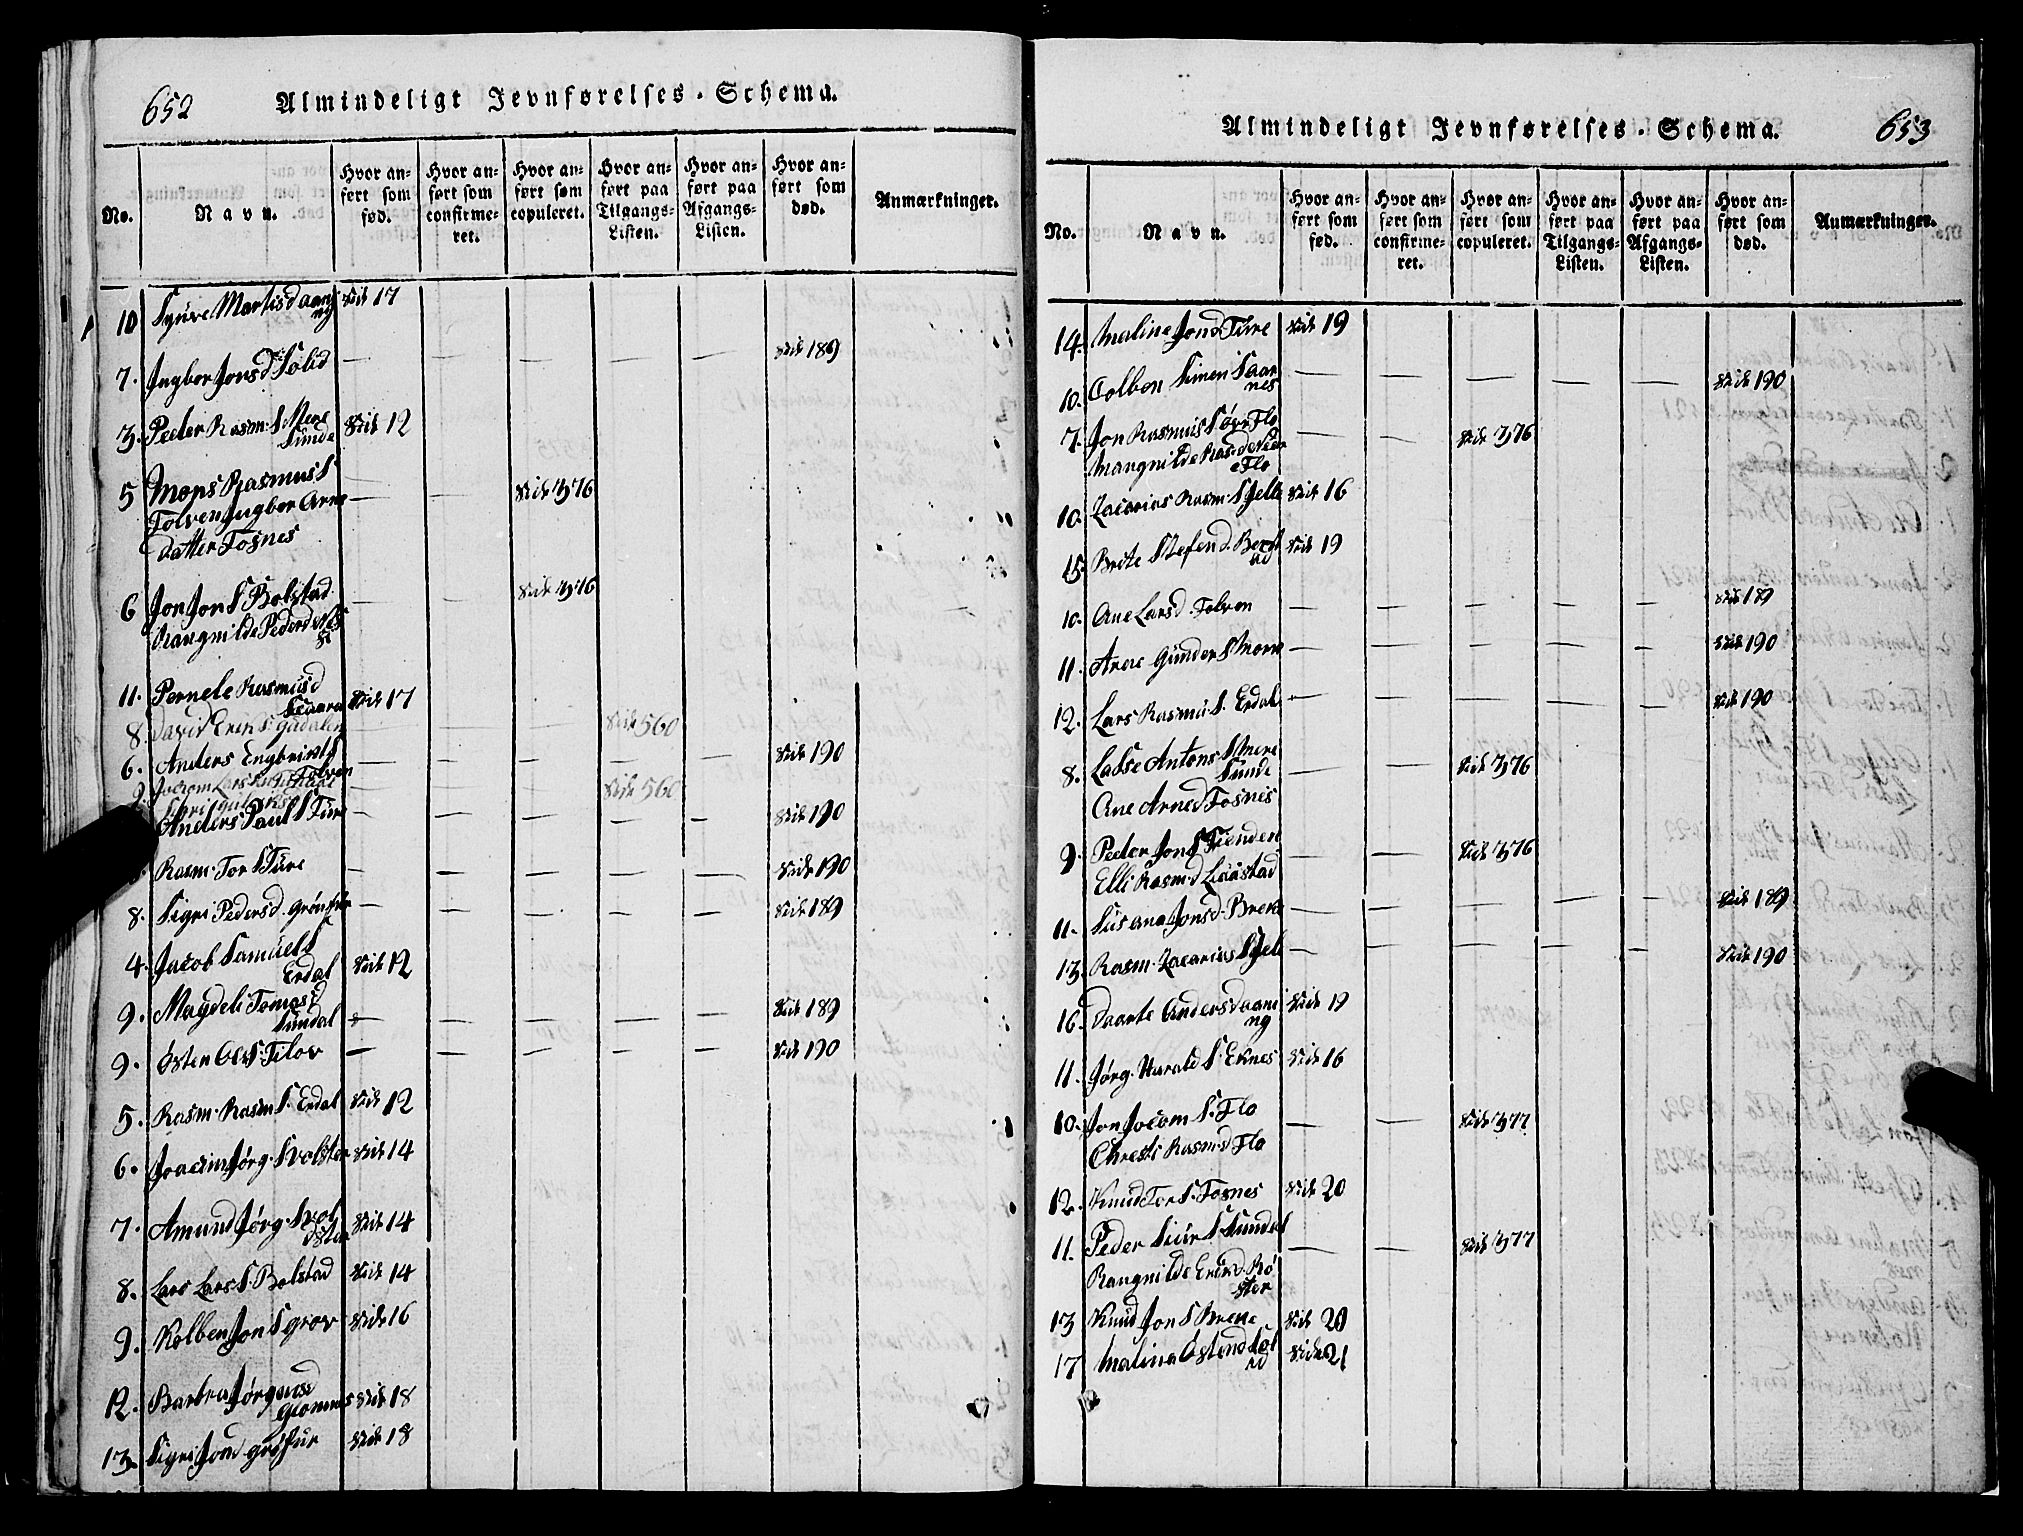 652
Almindeligt Jevnførelses-Schema.
No. Navn. Hvor anført som fød. Hvor anført som confirmeret. Hvor anført som copuleret. Hvor anført paa Tilgangs-Listen. Hvor anført paa Afgangs-Listen. Hvor anført som død. Anmærkninger.
10 Martisd aani Side 17
ng
7. Ingbor Jonsd Solid — — — — — Side 189
3. Peder Rasm. S. Mere Side 12
Sunde
5 Mons Rasmus S
Folven Ingbor Arne — — Side 376
datter Fosnes
6 Jon Jon S Bolstad — — Side 376
Rangnilde Pedersd
11. Pernele Rasmusd
Scaara Side 17
8. David Erik S. — — — Side 560
6. Anders Engbrigt S — — — — — Side 190
Folven
9. Jocom Lars S — — — Side 560
Anders Paul S Ture — — — — — Side 190
Rasm. Tor S Ture — — — — — Side 190
8. Sigri Pedersd. Grønfur — — — — — Side 189
4. Jacob Samuel S
Erdal Side 12
9. Magdeli Tomasd
Sundal — — — — — Side 189
9. Østen Ols S. Tilov — — — — — Side 190
5. Rasm. Rasm S. Erdal Side 12
6. Joacim Jørg. S Volster Side 14
7. Amund Jørg. S Vol Side 14
dster
8. Lars Lars S. Bolstad Side 14
9. Kolben Jon S grov Side 16
12. Barbra Jørgensd
Glomnes Side 18
13. Sigri Jond grøfur Side 18
653
Almindeligt Jevnførelses-Schema.
No. Navn. Hvor anført som fød. Hvor anført som confirmeret. Hvor anført som copuleret. Hvor anført paa Tilgangs-Listen. Hvor anført paa Afgangs-Listen. Hvor anført som død. Anmærkninger.
14. Maline Jond. Ture Side 19
10. Colben Simen S aar — — — — — Side 190
nes
7. Jon Rasmus S øvr Flo — — Side 376
Mangnilde Rasd Neder
e Flo
10. Zacarias Rasm. S Jelle Side 16
15. Brite Stefend. Berst Side 19
ad
10. Ane Larsd. Folven — — — — — Side 189
11. Arne Gunder S Morre — — — — — Side 190
12. Lars Rasmu S. Erdal — — — — — Side 190
8. Ladse Antons S Mere
Sunde — — Side 376
Ane Arned Fosnes
9. Peder Jon S Tienden — — Side 376
Elli Rasmd Liaastad
11. Susana Jonsd. Breke — — — — — Side 189
13. Rasm. Zacarias S Jele — — — — — Side 190
16. Daarte Andersd aani Side 19
ng
11. Jørg. Harald S. Eknes Side 16
10. Jon Jocom S. Flo — — Side 377
Christi Rasmsd Flo
12. Knud Tor S. Fosnes Side 20
11. Peder Siur S Sundal — — Side 377
Rangnilde Erikd. Rø
ster
13 Knud Jon S Breke Side 20
17 Malina Østend Sol Side 21
id